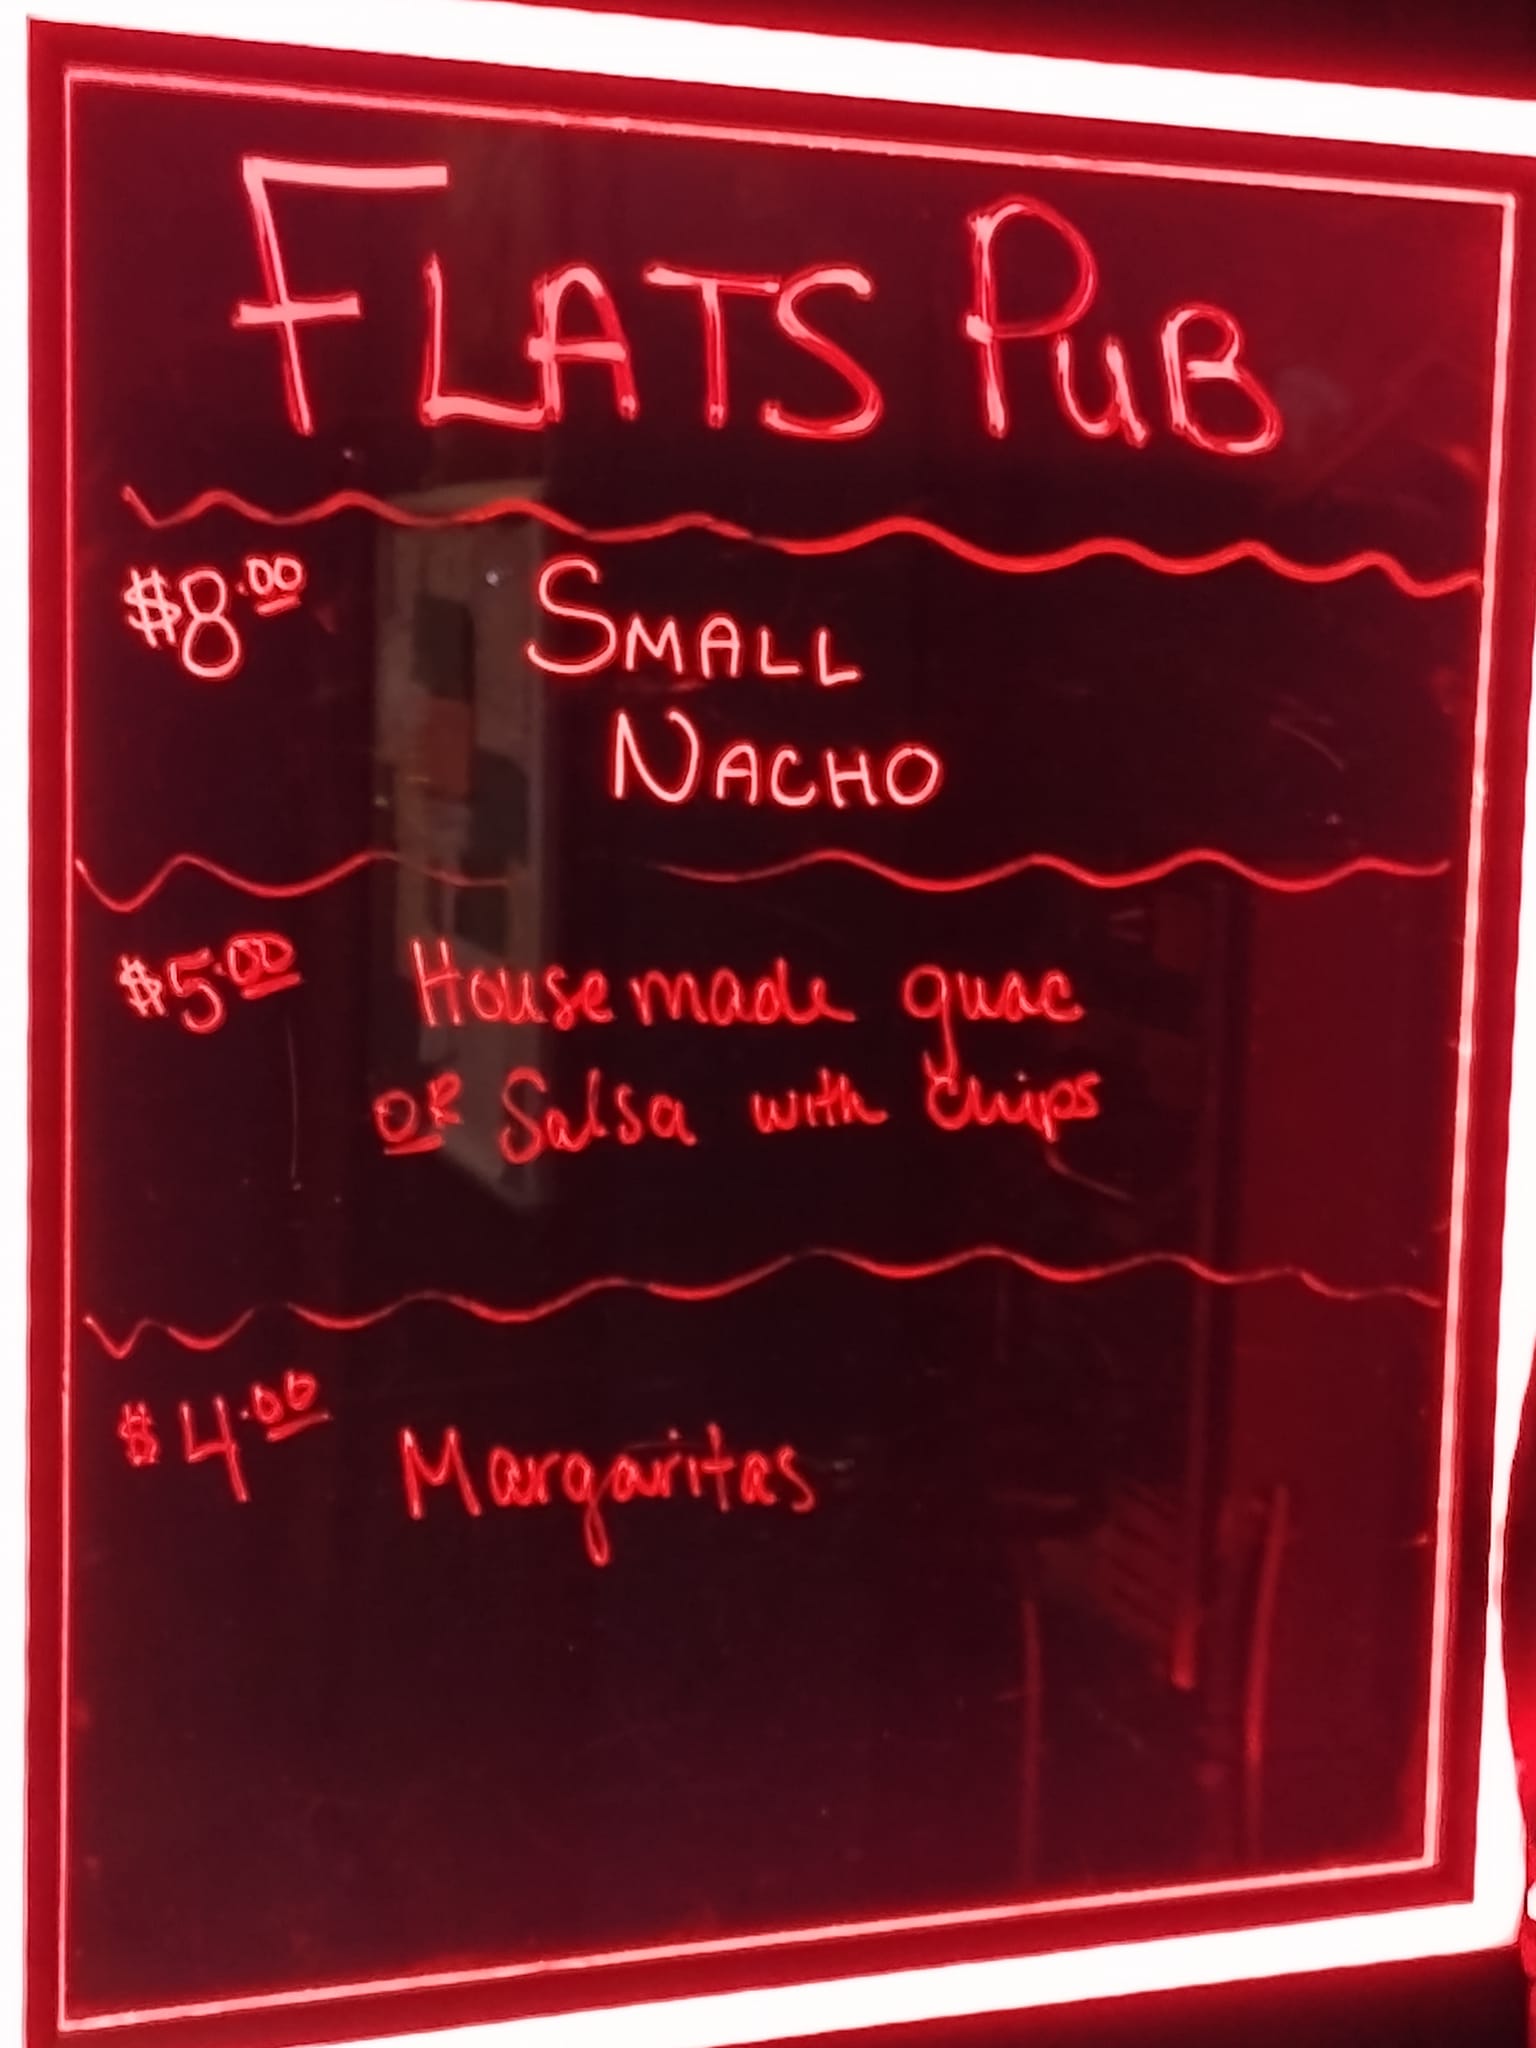 FLATS PUB
$8.00 SMALL
NACHO
$5.00 Housemade guac
OR Salsa with chips
$4.00 Margaritas